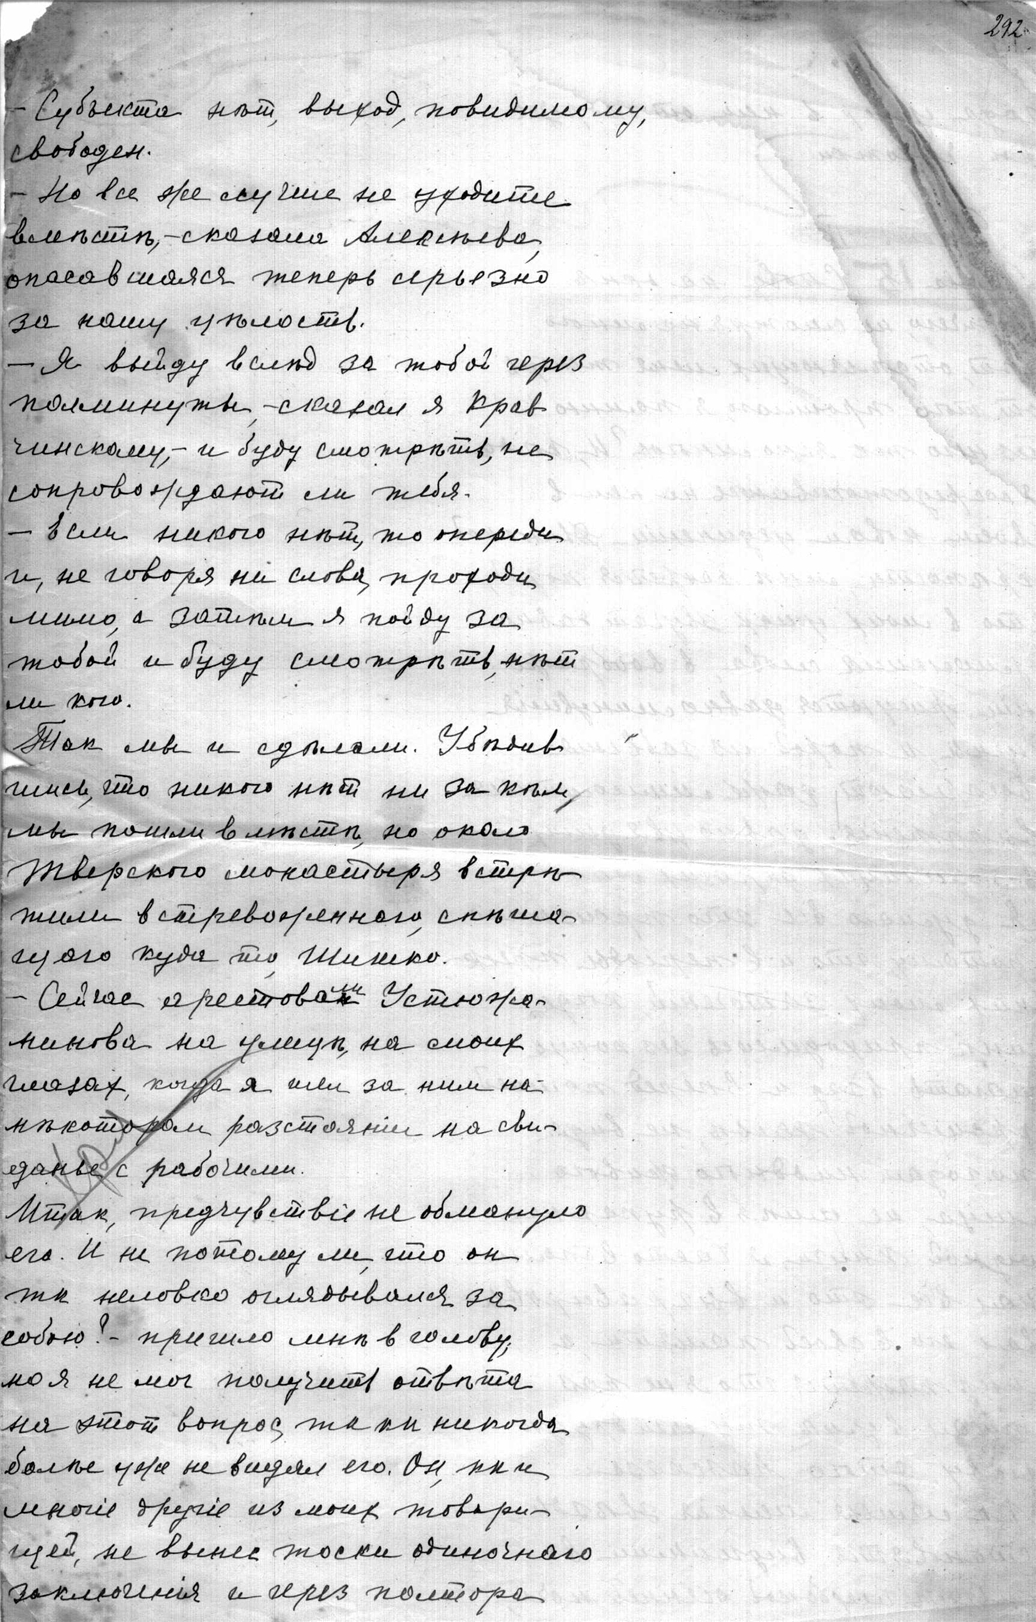 292
- Субъекта нѣт, выход, повидимому,
свободен.
- Но все же лучше не уходите
вмѣстѣ, - сказала Алексѣева,
опасавшаяся теперь серьезно
за нашу цѣлость.
- Я выйду вслѣд за тобой через
полминуты, - сказал я Крав
чинскому, - и буду смотрѣть, не
сопровождают ли тебя.
- Если никого нѣт, то опереди
и, не говоря ни слова, проходи
мимо, а затѣм я пойду за
тобой и буду смотрѣть, нѣт
ли кого.
Так мы и сдѣлали. Убѣдив
шись, что никого нѣт ни за кѣм,
мы пошли вмѣстѣ, но около
Тверского монастыря встрѣ
тили встревоженного, спѣша-
щаго куда то, Шишко.
- Сейчас арестовали Устюжа-
нинова на улицѣ, на моих
глазах, когда я шел за ним на
нѣкотором разстояніи на сви-
данье с рабочими.
Итак, предчувствіе не обмануло
его. И не потому ли, что он
так неловко оглядывался за
собою? - пришло мнѣ в голову,
но я не мог получить отвѣта
на этот вопрос, так как никогда
болѣе уже не видал его. Он, как и
многіе другіе из моих товари-
щей, не вынес тоски одиночнаго
заключенія и через полтора